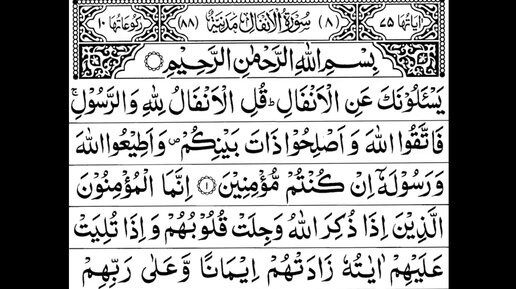 اٰيَاتُهَا ٧٥ (٨) سُوْرَةُ الْاَنْفَالِ مَدَنِيَّةٌ (٨٨) رُكُوْعَاتُهَا ١٠
بِسْمِ اللّٰهِ الرَّحْمٰنِ الرَّحِيْمِ
يَسْـَٔلُوْنَكَ عَنِ الْاَنْفَالِ ؕ قُلِ الْاَنْفَالُ لِلّٰهِ وَ الرَّسُوْلِ ۚ
فَاتَّقُوا اللّٰهَ وَ اَصْلِحُوْا ذَاتَ بَيْنِكُمْ ۪ وَ اَطِيْعُوا اللّٰهَ
وَ رَسُوْلَهٗۤ اِنْ كُنْتُمْ مُّؤْمِنِيْنَ ۝١ اِنَّمَا الْمُؤْمِنُوْنَ
الَّذِيْنَ اِذَا ذُكِرَ اللّٰهُ وَجِلَتْ قُلُوْبُهُمْ وَ اِذَا تُلِيَتْ
عَلَيْهِمْ اٰيٰتُهٗ زَادَتْهُمْ اِيْمَانًا وَّ عَلٰى رَبِّهِمْ